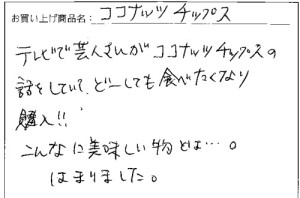 お買い上げ商品名：ココナッツチップス
テレビで芸人さんがココナッツチップスの
話をしていて、どーしても食べたくなり
購入!!
こんなに美味しい物とは…。
はまりました。